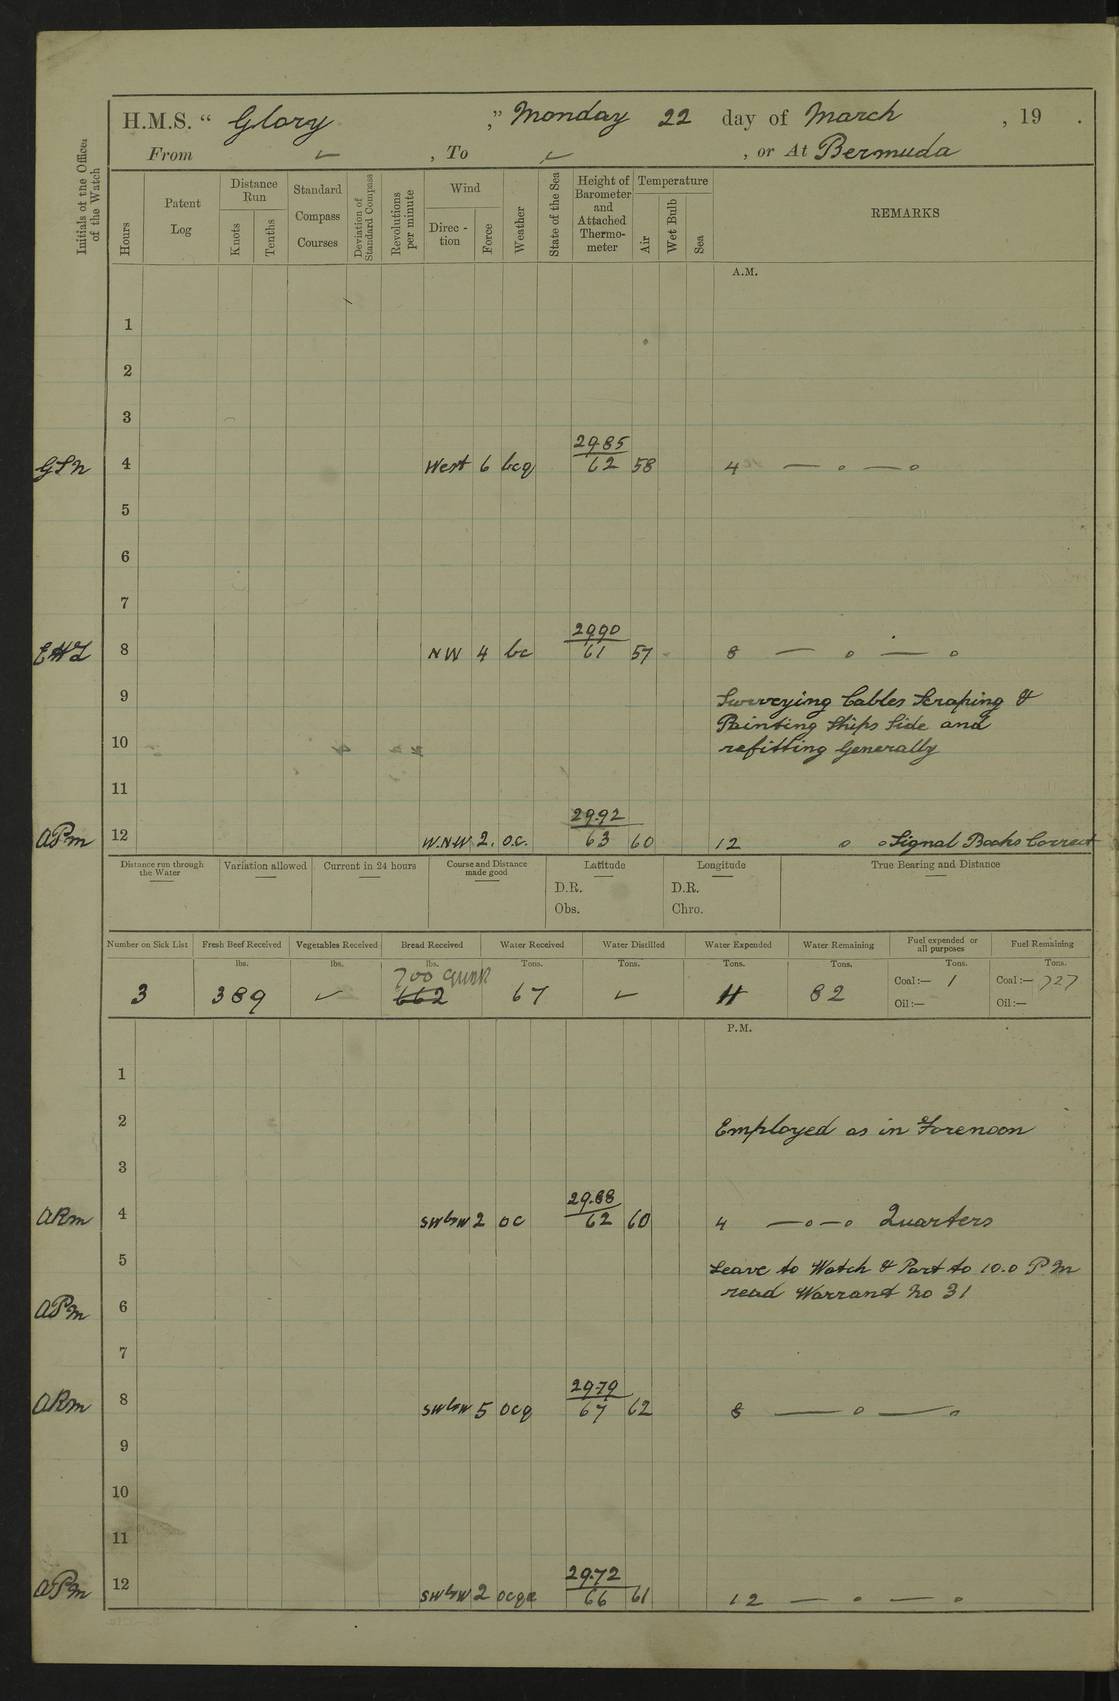 H.M.S. “ Glory ,” Monday 22 day of March , 19 .
From ✓ , To ✓ , or At Bermuda
Initials of the Officer of the Watch
Hours
Patent Log
Distance Run
Knots
Tenths
Standard Compass Courses
Deviation of Standard Compass
Revolutions per minute
Wind
Direc-tion
Force
Weather
State of the Sea
Height of Barometer and Attached Thermo-meter
Temperature
Air
Wet Bulb
Sea
REMARKS
A.M.
1
2
3
29.85
4 West 6 bcq 62 58 4 — o — o
5
6
7
29.90
EHL 8 NW 4 bc 61 57 8 — o — o
9 Surveying Cables Scraping &
Painting Ships Side and
10 refitting Generally
11
29.92
APM 12 W.N.W 2. o.c. 63 60 12 o o Signal Books Correct
Distance run through the Water
Variation allowed
Current in 24 hours
Course and Distance made good
Latitude
D.R.
Obs.
Longitude
D.R.
Chro.
True Bearing and Distance
Number on Sick List
Fresh Beef Received
Vegetables Received
Bread Received
Water Received
Water Distilled
Water Expended
Water Remaining
Fuel expended or all purposes
Fuel Remaining
lbs. lbs. lbs. Tons. Tons. Tons. Tons. Tons. Tons.
700
3 389 ✓ 662 67 ✓ 82 Coal:— 1 Coal:— 727
Oil:— Oil:—
P.M.
1
2 Employed as in Forenoon
3
29.88
ARM 4 SWbW 2 oc 62 60 4 — o — o Quarters
5 Leave to Watch & Part to 10.0 P.M
read Warrant No 31
APM 6
7
29.79
ARM 8 SWbW 5 ocq 67 62 8 — o — o
9
10
11
29.72
APM 12 SWbW 2 66 61 12 — o — o